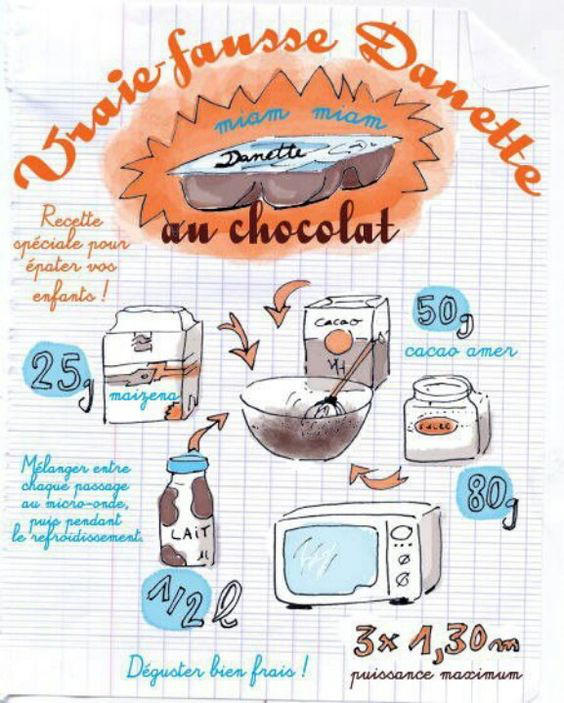 Vraie-fausse Danette
miam miam
Danette
au chocolat
Recette
spéciale pour
épater vos
enfants !
25g
maizena
cacao
50g
cacao amer
SUCRE
80g
Mélanger entre
chaque passage
au micro-onde,
puis pendant
le refroidissement.
LAIT
1L
1/2 l
3x 1,30m
puissance maximum
Déguster bien frais !